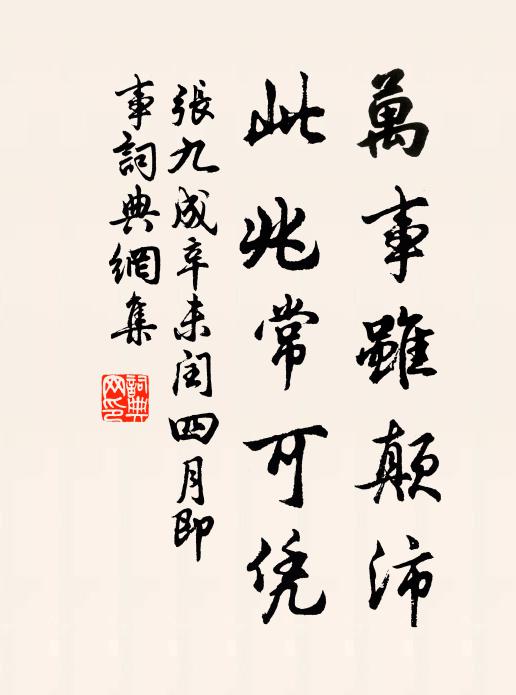 萬事雖顛沛
此兆常可凭
張九成辛未閏四月即
事詞典網集
詞典
网印